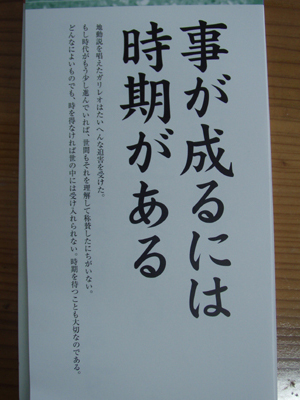 事が成るには
時期がある
地動説を唱えたガリレオはたいへんな迫害を受けた。
もし時代がもう少し進んでいれば、世間もそれを理解して称賛したにちがいない。
どんなによいものでも、時を得なければ世の中には受け入れられない。時期を待つことも大切なのである。